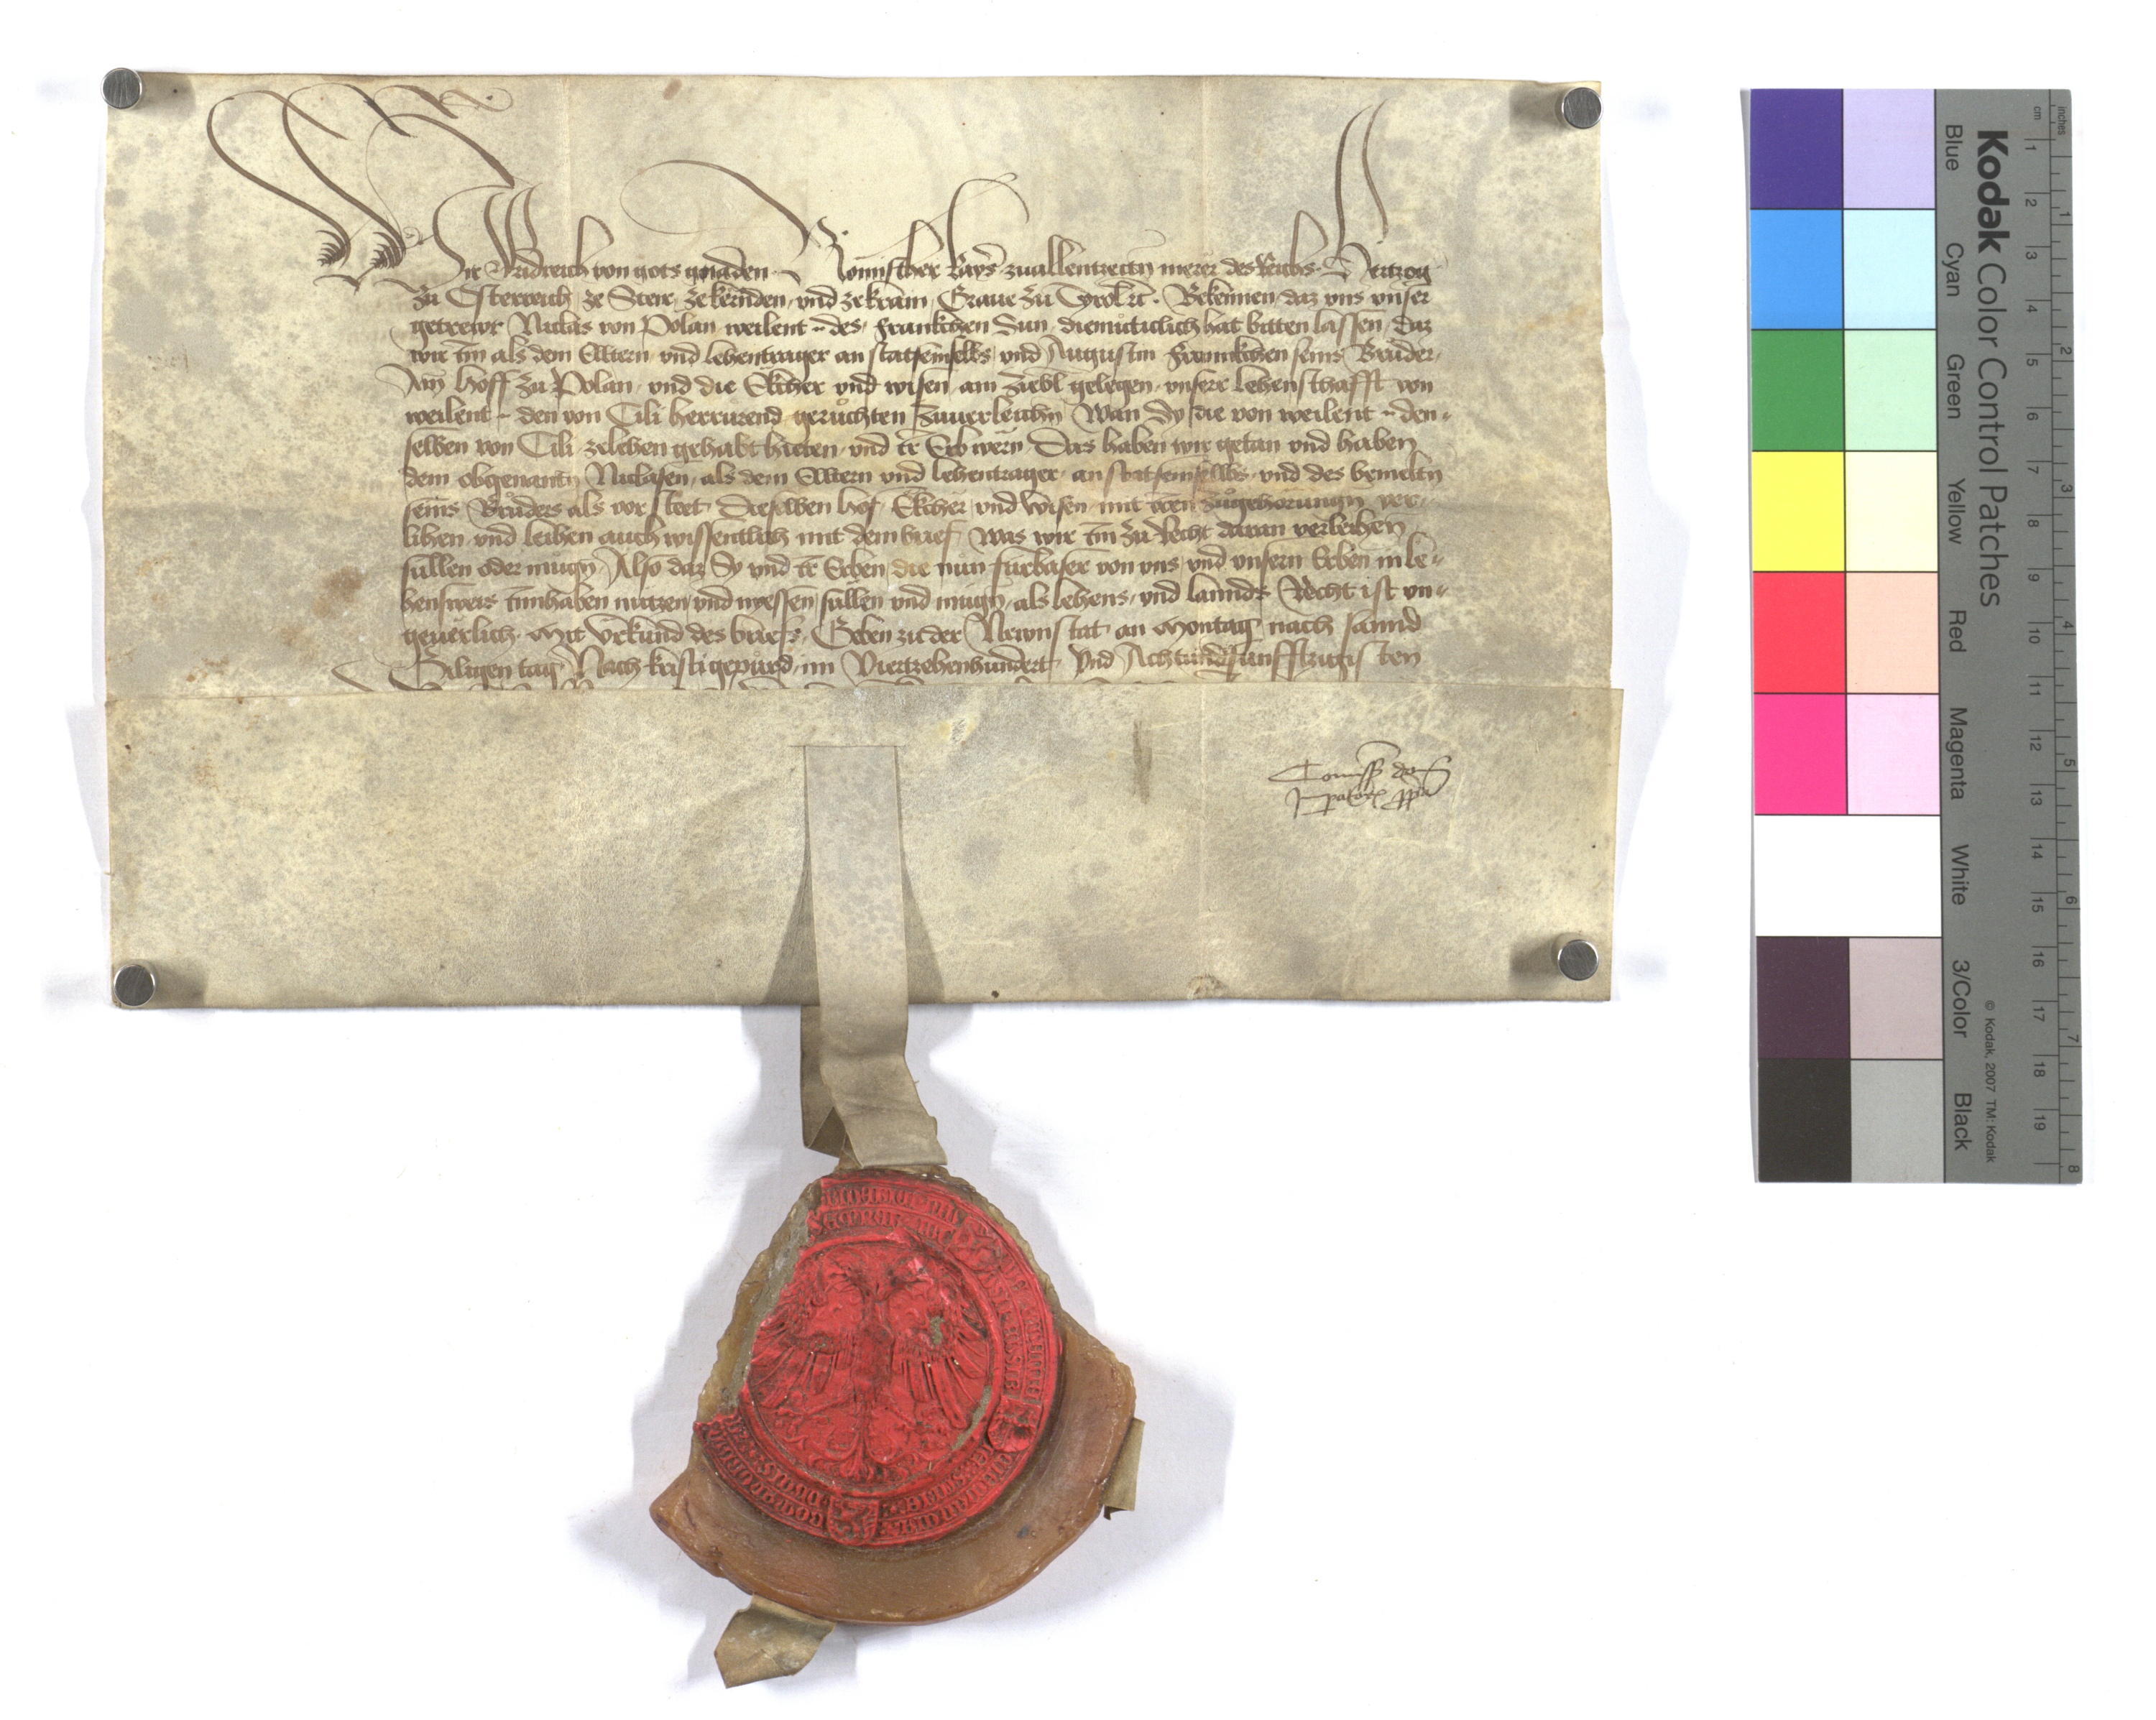 Wir Fridreich von gots gnaden Romischer kayser zuallentzeitn merer des Reichs Hertzog
zu Österreich ze Steir ze kernden und ze krain Graue zu Tyrol etc. Bekennen daz uns unser
getrewr Niclas von Polan weilent .. des Frankchen Sun diemuticlich hat bitten lassen daz
wir im als dem Elltern und lehentrager an statseinselbs und Augustin Frannkchen seins Bruder
Ain hoff zu Polan und die Ekcher und wisen am gelegen unserr lehenschafft von
weilent .. den von Cili herrurend geruchten zuuerleichn Wan Sy die von weilent .. den-
selben von Cili zelehen gehabt hieten und ir Erb wern Das haben wir getan und haben
dem obgenantn Niclasen als dem Elltern und lehentrager an statseinselbs und des bemeltn
seins Bruders als vor steet Dieselben hof Ekcher und wisen mit iren zugehorungn ver-
lihen und leihen auch wissentlich mit dem brief Was wir im zu Recht daran verleihen
sullen oder mugn Also daz Sy und ir Erben die nun furbaser von uns und unsern Erben in le-
hensweis innhaben nutzen und nyessen sullen und mugn als lehens und lannds Recht ist un-
geuerlich Mit Urkund des briefs Geben zu der Newnstat an Montag nach sannd
Giligen tag Nach kristi gepurd im Viertzehenhundert und Achtundfunfftzigisten
Comissio domini
Imperatoris propria
Kodak Color Control Patches
Blue Cyan Green Yellow Red Magenta White 3/Color Black
© Kodak, 2007 TM: Kodak
cm 1 2 3 4 5 6 7 8 9 10 11 12 13 14 15 16 17 18 19
inches 1 2 3 4 5 6 7 8